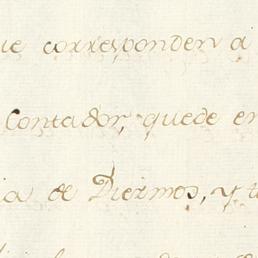 ue corresponden a
Contador, quede en
ia de Diezmos, y t